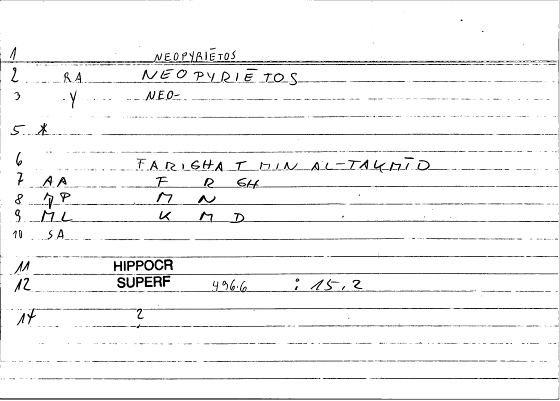 1 NEOPYRIĒTOS
2 RA NEOPYRIĒTOS
3 Y NEO-
5 *
6 FARIGHAT MIN AL-TAKMĪD
7 AA F R GH
8 MP M N
9 ML K M D
10 SA
11 HIPPOCR
12 SUPERF 496.6 : 15.2
14 2